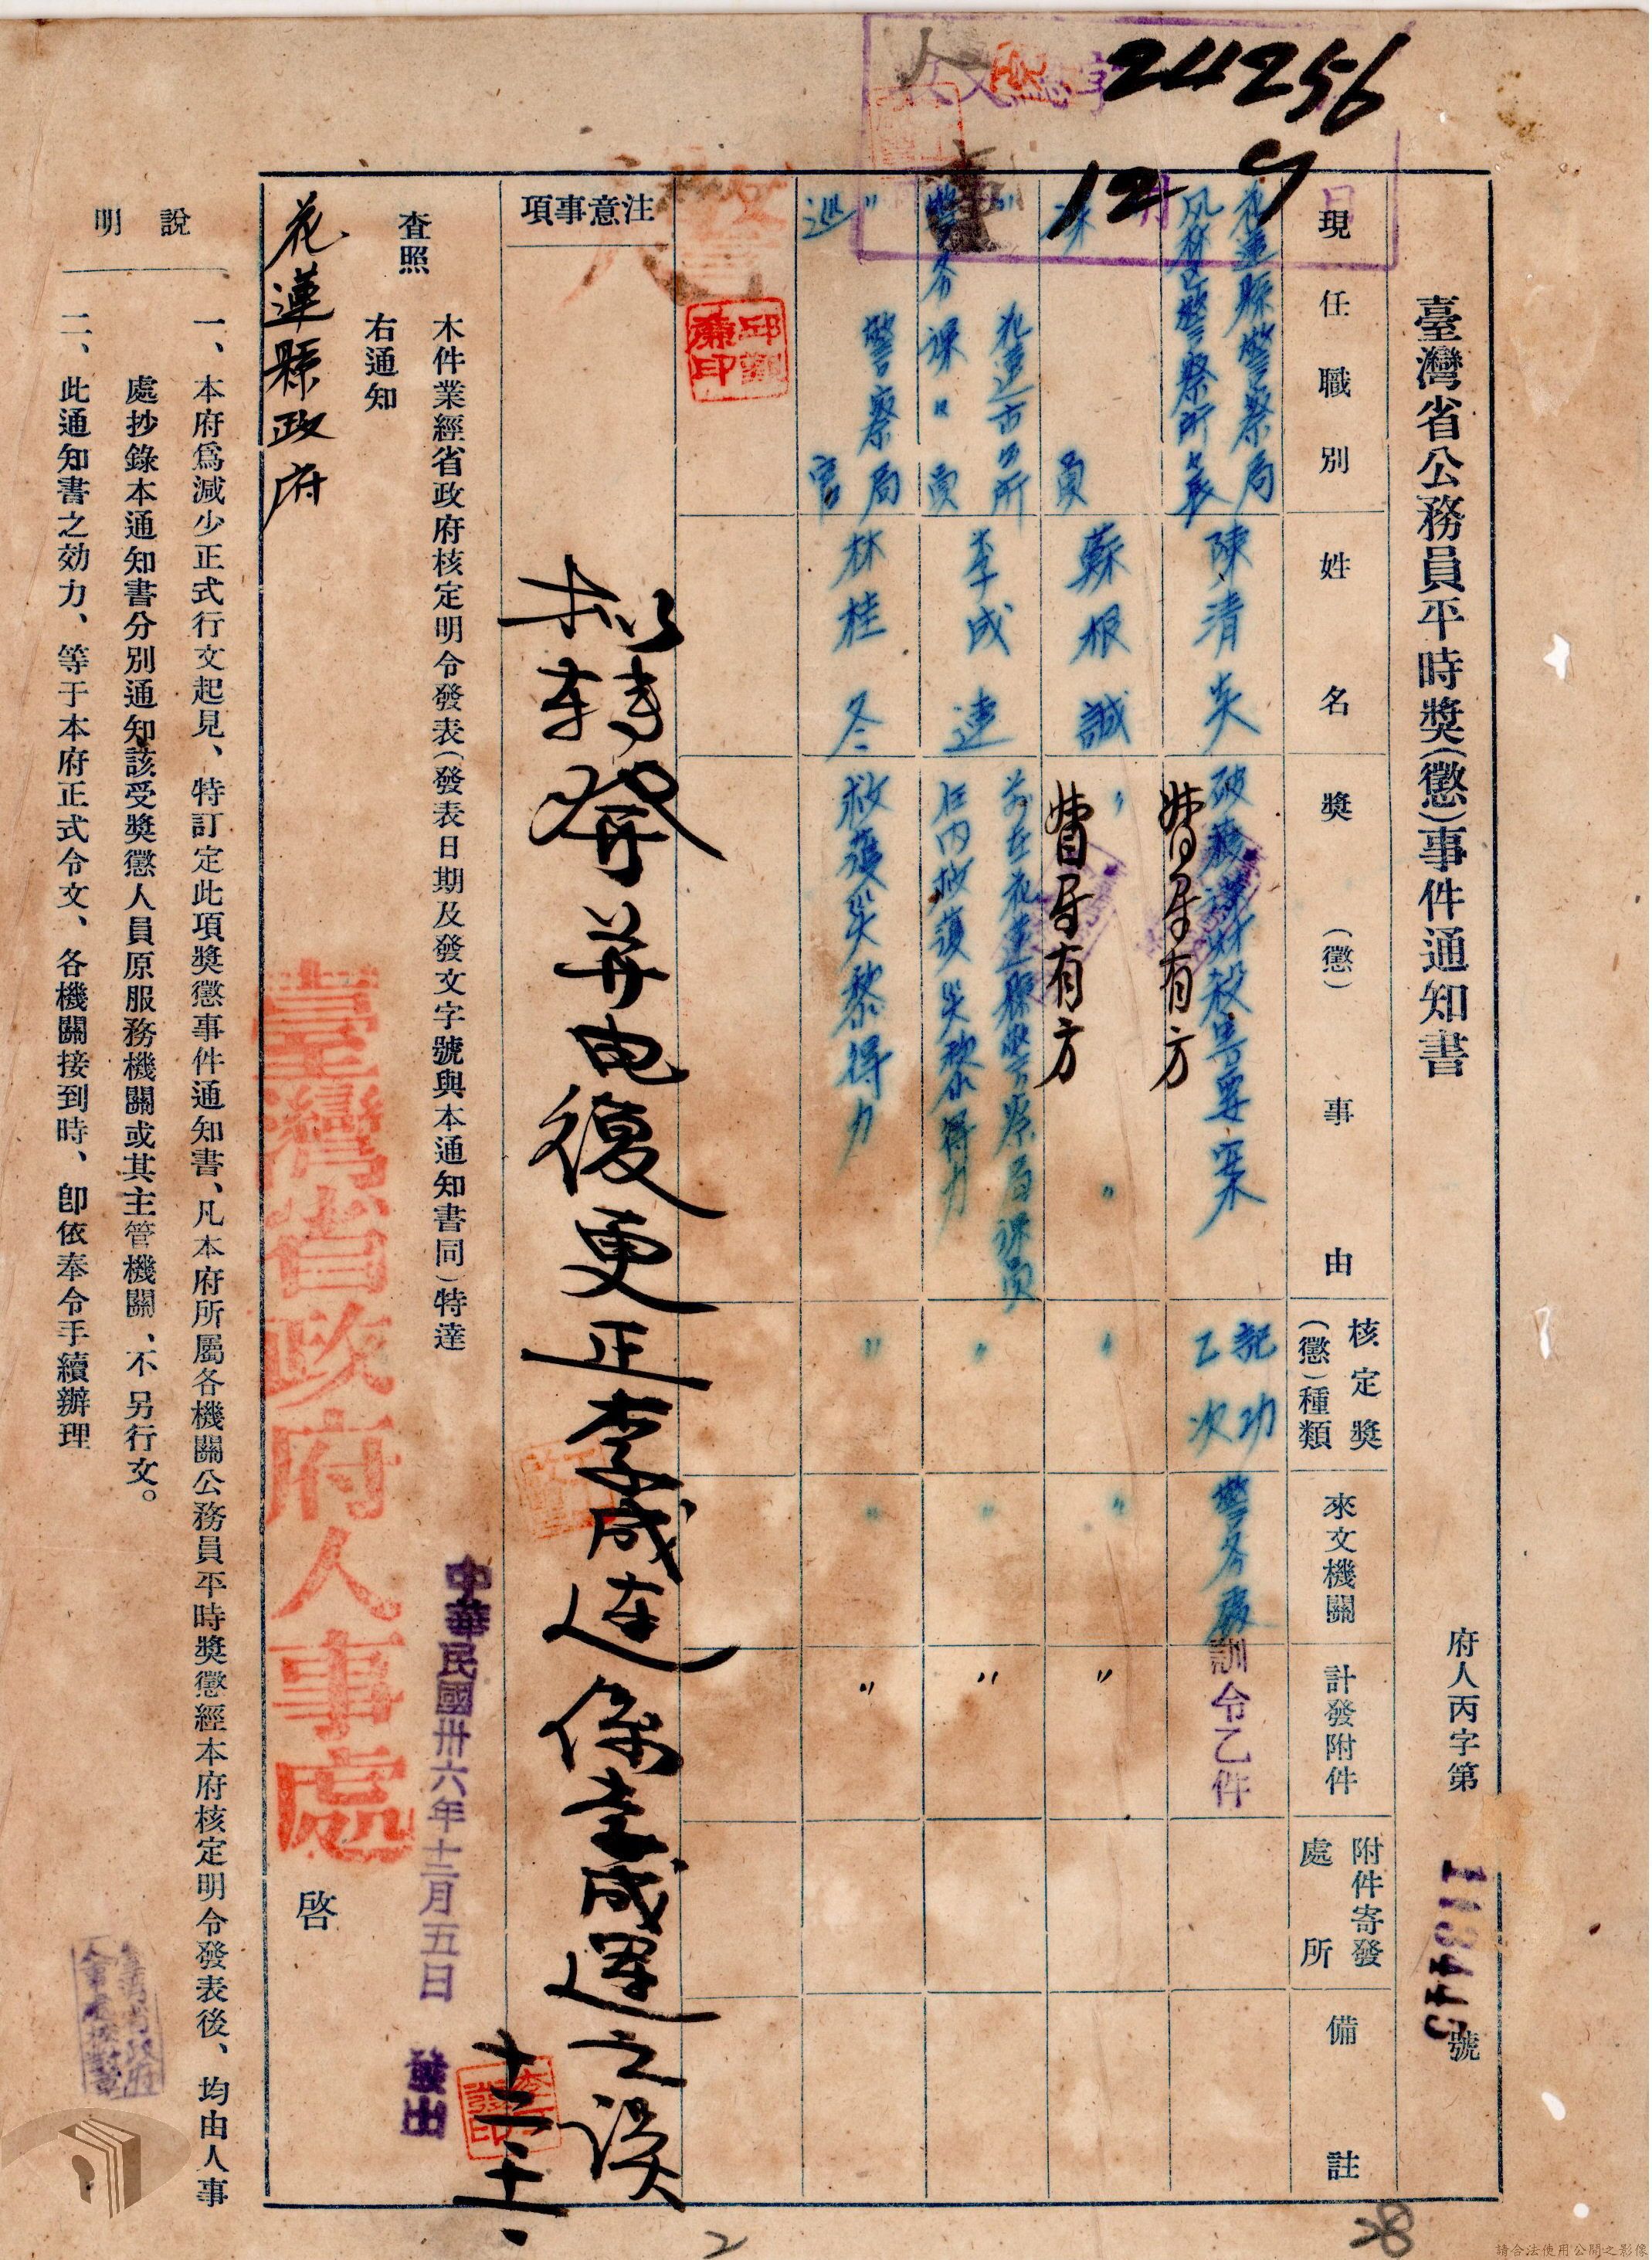 24256
12 9
臺灣省公務員平時獎(懲)事件通知書
府人丙字第
號
現任職別
姓名
獎(懲)事由
核定獎(懲)種類
來文機關
計發附件
附件寄發處所
備註
花蓮縣警察局
鳳林區警察所所長
陳清炎
破獲謀財殺害要案
督导有方
記功
乙次
警务處
訓令乙件
課員
蘇根誠
〃
督导有方
〃
〃
〃
〃
〃花蓮市〃所
警务課〃員
李成連
前在花蓮縣警察局課員
任内救護災黎得力
〃
〃
〃
〃警察局
巡官
林桂冬
救護災黎得力
〃
〃
〃
邱觀廉印
注意事項
拟轉發并电復更正李成连係李成運之误
十二、十一、
本件業經省政府核定明令發表(發表日期及發文字號與本通知書同)特達
查照
右通知
花蓮縣政府
中華民國卅六年十二月五日
發出
臺灣省政府人事處
啓
說明
一、本府爲減少正式行文起見、特訂定此項獎懲事件通知書、凡本府所屬各機關公務員平時獎懲經本府核定明令發表後、均由人事
處抄錄本通知書分別通知該受獎懲人員原服務機關或其主管機關、不另行文。
二、此通知書之効力、等于本府正式令文、各機關接到時、卽依奉令手續辦理
2
28
請合法使用公開之影像